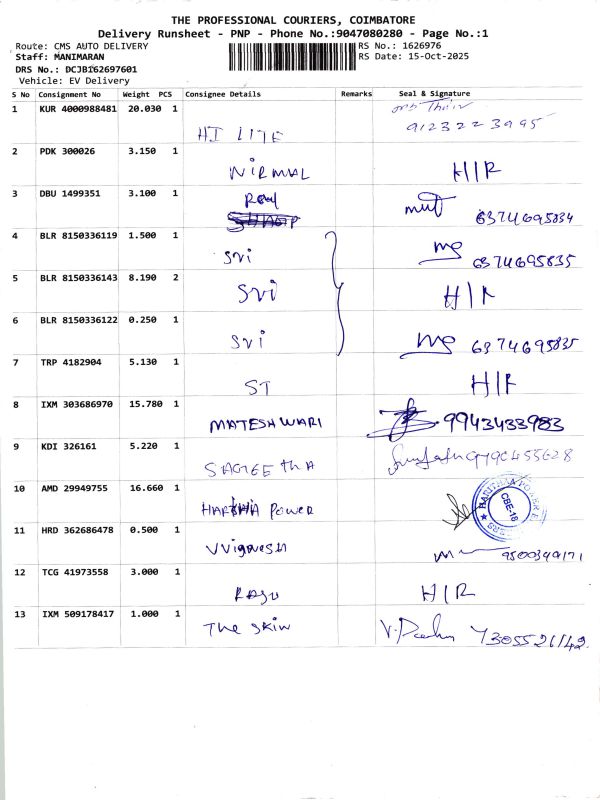 THE PROFESSIONAL COURIERS, COIMBATORE
Delivery Runsheet - PNP - Phone No.:9047080280 - Page No.:1
Route: CMS AUTO DELIVERY RS No.: 1626976
Staff: MANIMARAN RS Date: 15-Oct-2025
DRS No.: DCJB162697601
Vehicle: EV Delivery
S No Consignment No Weight PCS Consignee Details Remarks Seal & Signature
1 KUR 4000988481 20.030 1 HI LITE 9123223995
2 PDK 300026 3.150 1 NIRMAL H|R
3 DBU 1499351 3.100 1 Real 6374695834
4 BLR 8150336119 1.500 1 Svi 6374695835
5 BLR 8150336143 8.190 2 Svi H|R
6 BLR 8150336122 0.250 1 Svi 6374695835
7 TRP 4182904 5.130 1 ST H|R
8 IXM 303686970 15.780 1 MATESHWARI 9943433983
9 KDI 326161 5.220 1
10 AMD 29949755 16.660 1 Power CBE-18
11 HRD 362686478 0.500 1 Vvignesh 9500349171
12 TCG 41973558 3.000 1 Rasu H|R
13 IXM 509178417 1.000 1 The Skin 7305521142